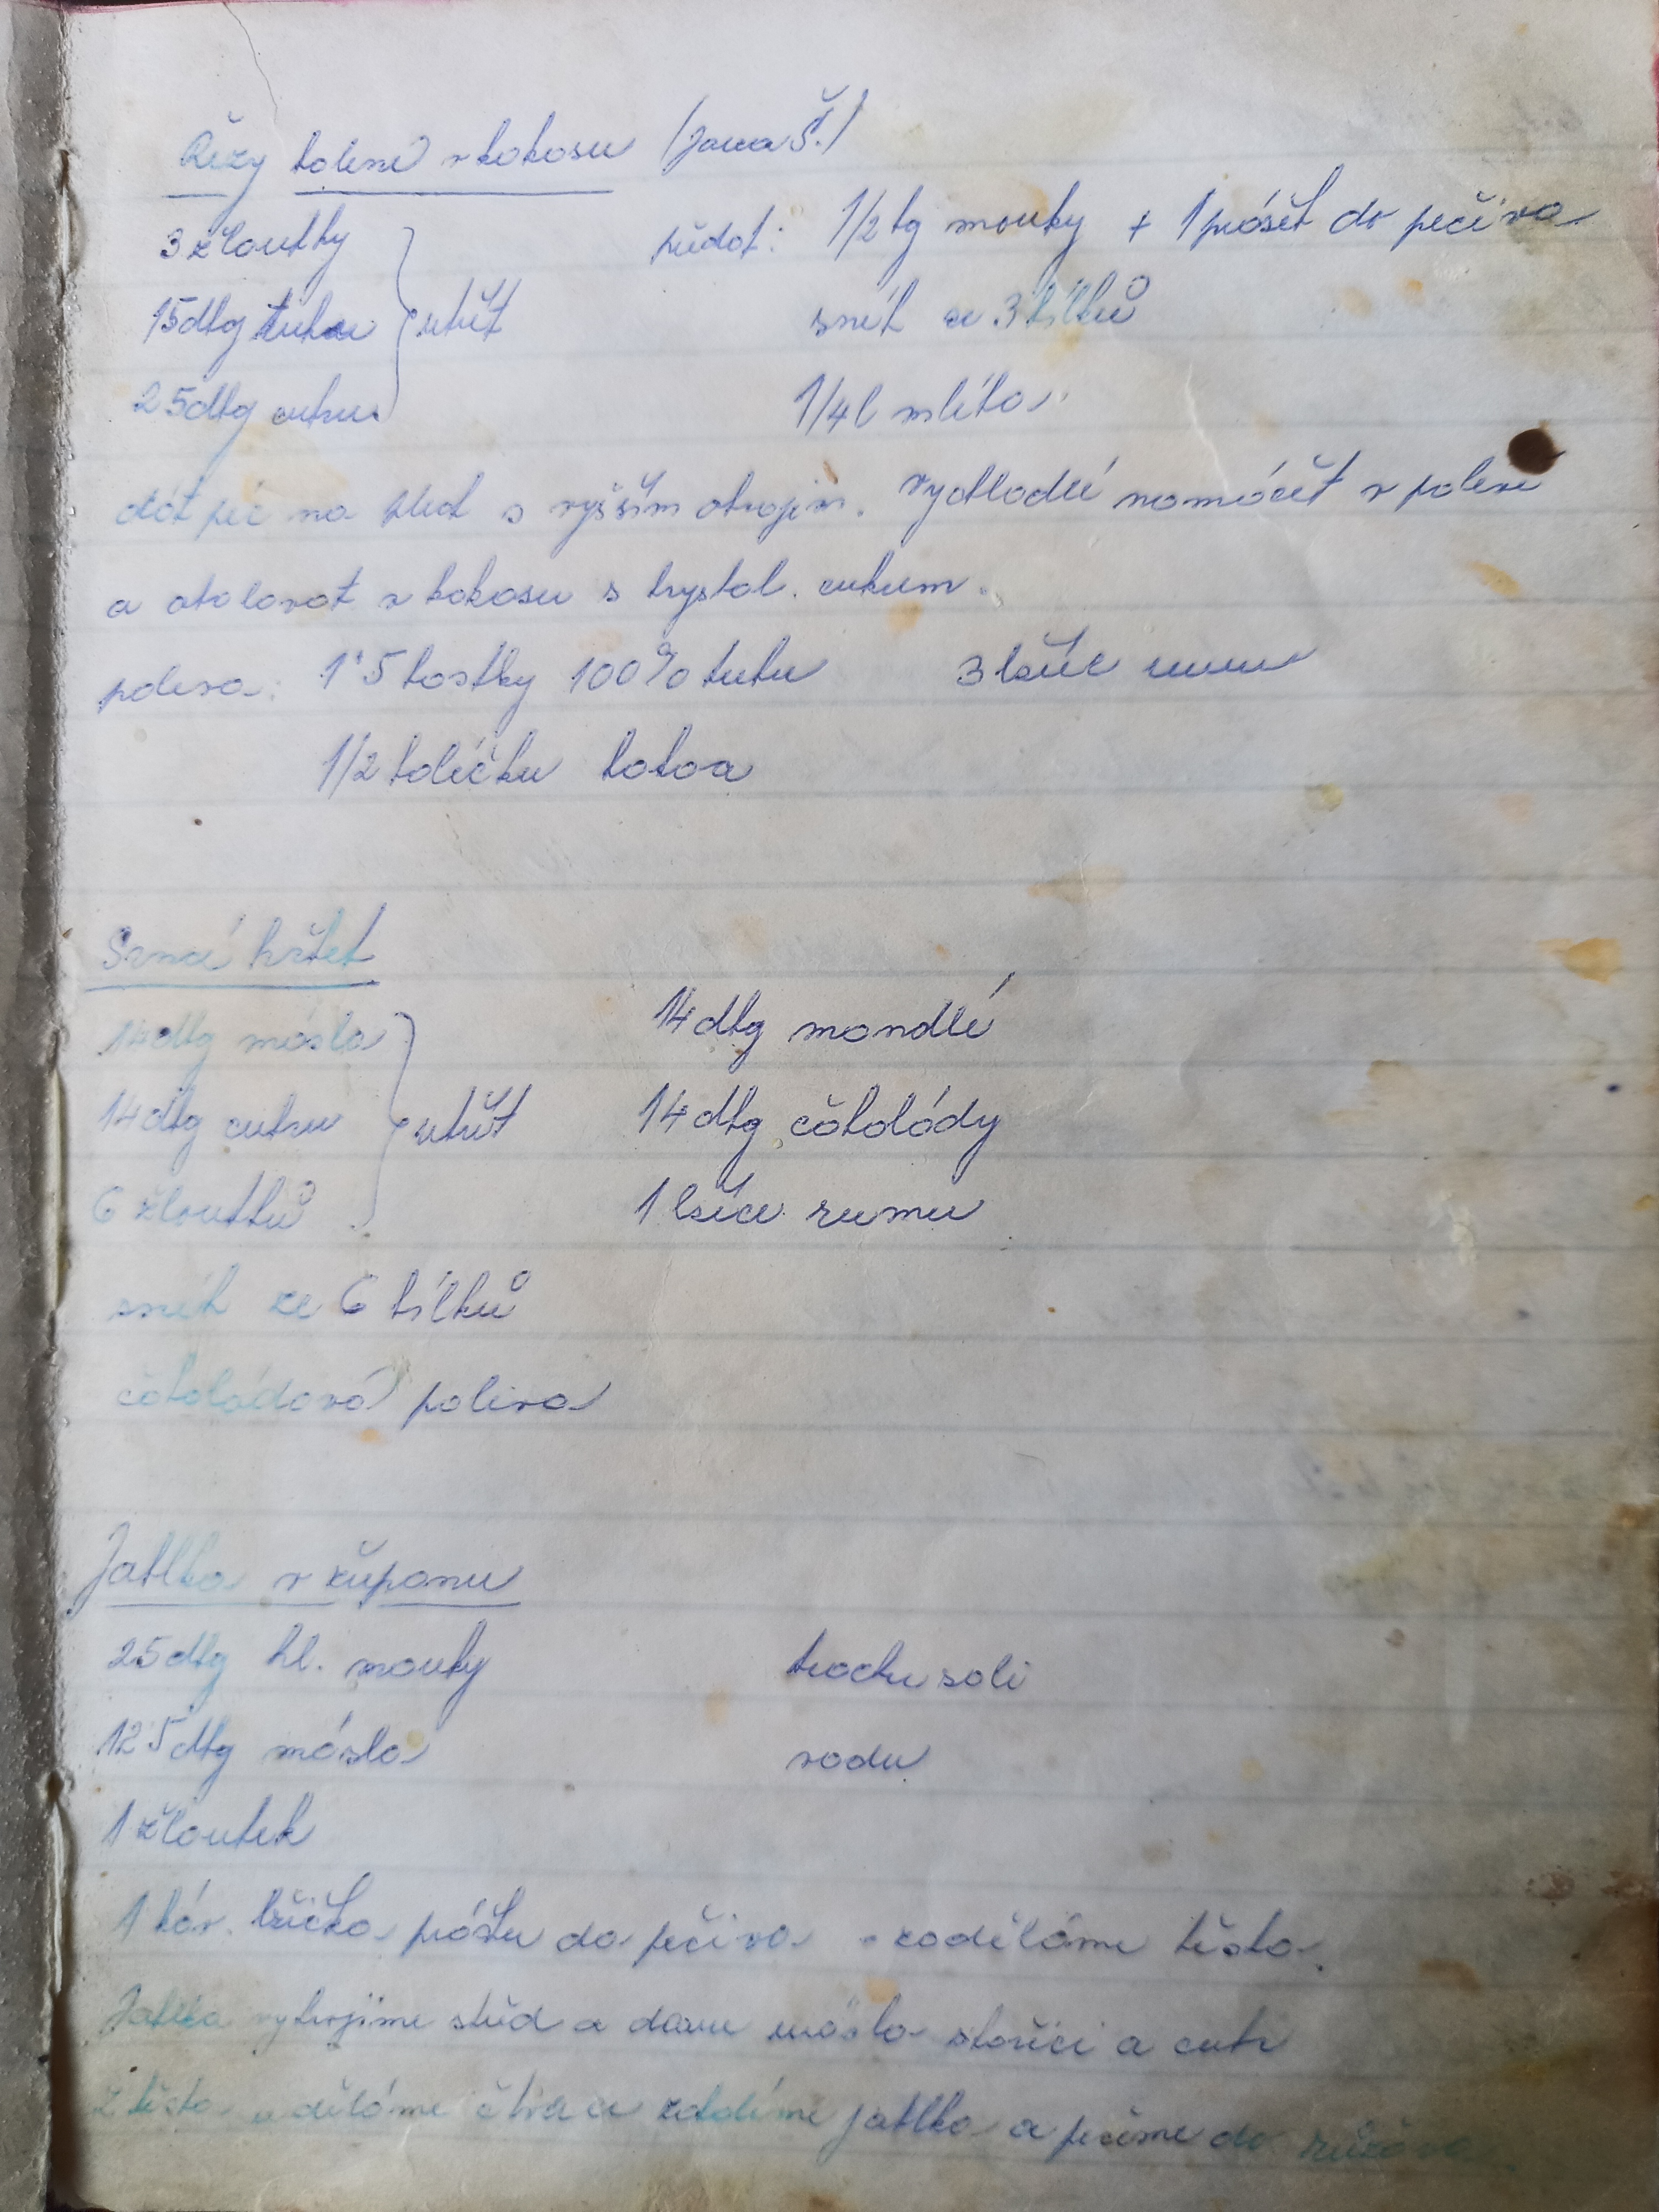 Řezy balené v kokosu (Jana Š.)
3 žloutky
15dkg tuku utřít
25dkg cukru
přidat: 1/2 kg mouky + 1 prášek do pečiva
sníh ze 3 bílků
1/4 l mléka
dát péc na plech s vyšším okrajem. vychladlé namáčet v polevě
a obalovat v kokosu s krystal. cukrem.
poleva: 1'5 kostky 100% tuku 3 lžíce rumu
1/2 balíčku kakaa
Srnčí hřbet
14dkg másla
14dkg cukru utřít
6 žloutků
14dkg mandlí
14dkg čokolády
1 lžíce rumu
sníh ze 6 bílků
čokoládová poleva
Jablka v županu
25dkg hl. mouky trochu soli
12'5dkg másla vodu
1 žloutek
1 káv. lžička prášku do pečiva - zaděláme těsto.
Jablka vykrojíme střed a dáme máslo skořici a cukr
Z těsta uděláme čtverce zabalíme jablka a pečeme do růžova.